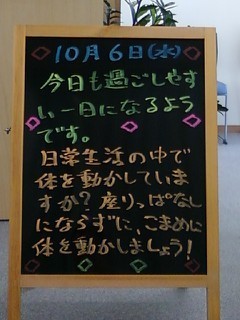 10月6日(水)
今日も過ごしやす
い一日になるよう
です。
日常生活の中で
体を動かしていま
すか？座りっぱなし
にならずに、こまめに
体を動かしましょう！